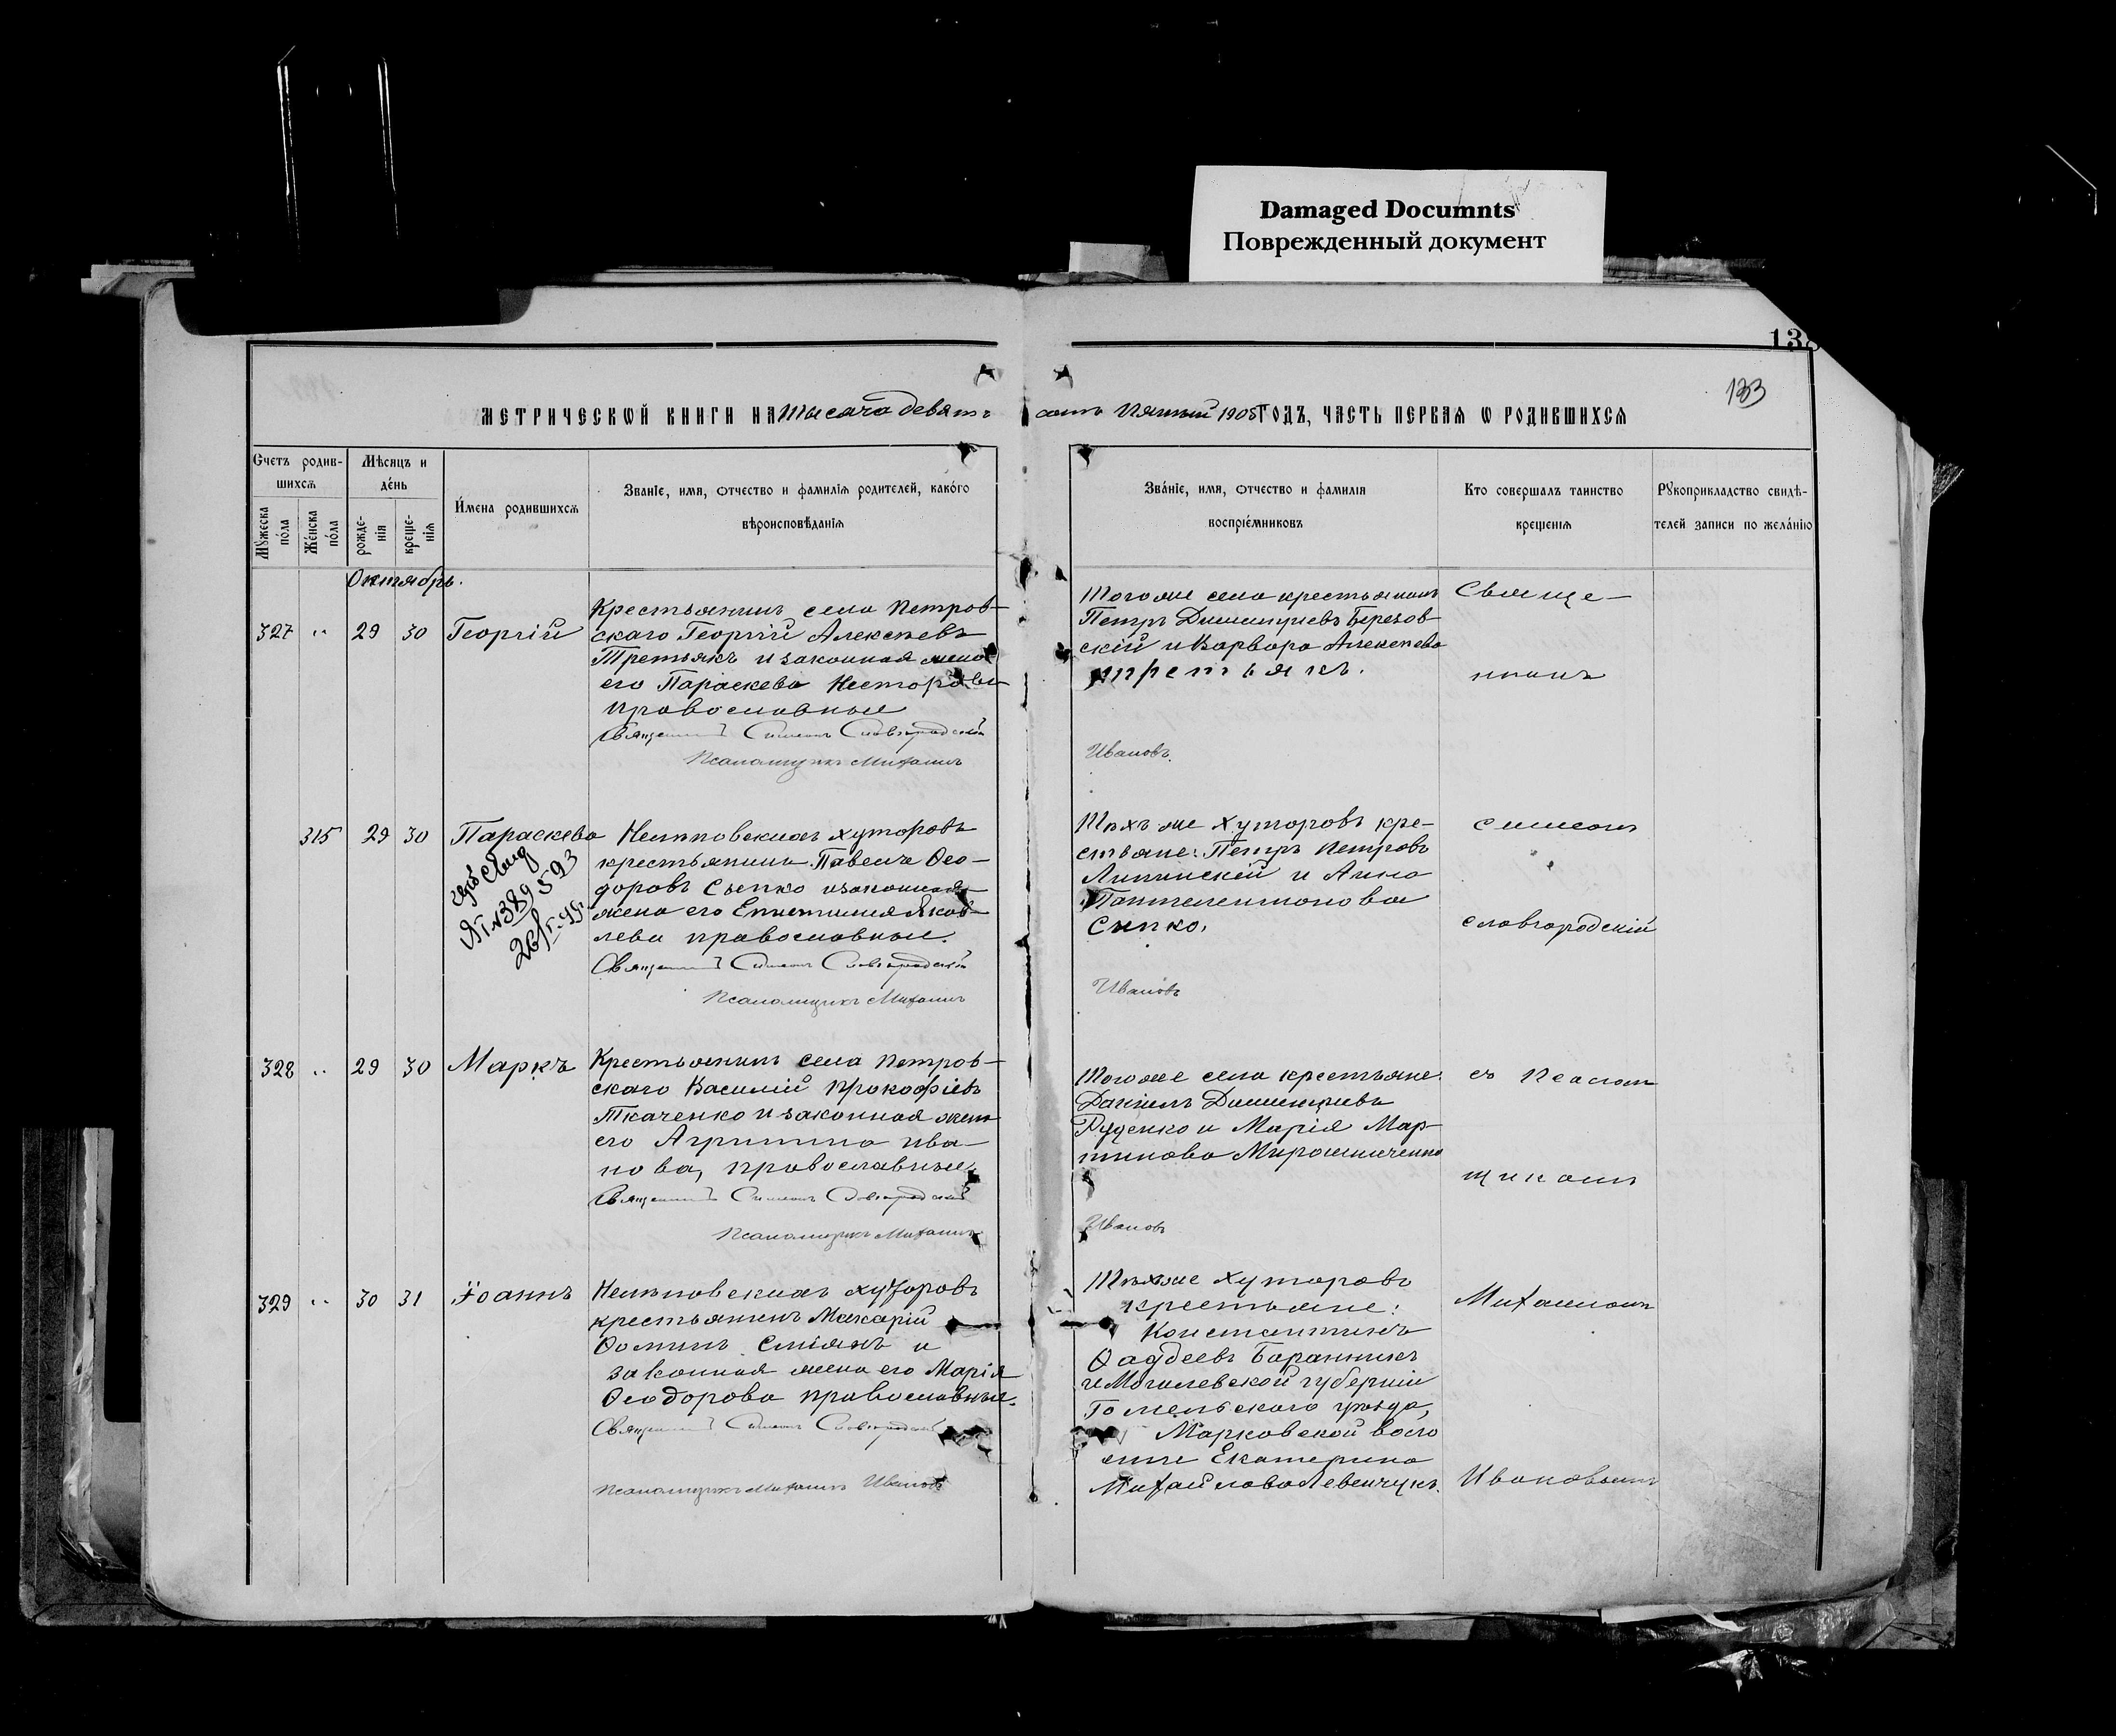 Damaged Documnts
Поврежденный документ
13
133
МЕТРИЧЕСКѠЙ КНИГИ НА тысяча девять
сотъ пятый 1905 ГОДЪ, ЧАСТЬ ПЕРВАЯ Ѡ РОДИВШИХСЯ
Счетъ родив-
шихся
Мѣсяцъ и
день
Имена родившихся
Званіе, имя, отчество и фамилія родителей, какого
вѣроисповѣданія
Мужеска
пола
Женска
пола
рожде-
нія
креще-
нія
Званіе, имя, отчество и фамилія
воспріемниковъ
Кто совершалъ таинство
крещенія
Рукоприкладство свидѣ-
телей записи по желанію
Октябрь.
327 " 29 30 Георгій
Крестьянинъ села Петров-
скаго Георгій Алексѣевъ
Третьякъ и законная жена
его Параскева Несторова
православные
Священникъ Симеонъ Словгородскій
Псаломщикъ Михаилъ
Тогоже села крестьянинъ
Петръ Димитріевъ Березов-
скій и Варвара Алексѣева
Третьякъ.
Ивановъ.
Свяще-
нникъ
315 29 30 Параскева
№ 389593
26
Крестьянинъ Павелъ Ѳео-
доровъ Сѣпко и законная
жена его Епистимія Яков-
лева православные.
Священникъ Симеонъ Словгородскій
Псаломщикъ Михаилъ
Тѣхъ же хуторовъ кре-
стьяне: Петръ Петровъ
Липинскій и Анна
Пантелеимонова
Сѣпко.
Ивановъ
Симеонъ
Словгородскій
328 " 29 30 Маркъ
Крестьянинъ села Петров-
скаго Василій Прокофіевъ
Ткаченко и законная жена
его Агрипина Ива-
нова, православные
Священникъ Симеонъ Словгородскій
Псаломщикъ Михаилъ
Тогоже села крестьяне:
Даніилъ Димитріевъ
Руденко и Марія Мар-
тинова Мирошниченко
Ивановъ
съ Псалом
щикомъ
329 " 30 31 Іоаннъ
хуторовъ
крестьянинъ Макарій
Ѳоминъ Сміянъ и
законная жена его Марія
Ѳеодорова православные.
Священникъ Симеонъ Словгородскій
Псаломщикъ Михаилъ Ивановъ
Тѣхже хуторовъ
крестьяне:
Константинъ
Ѳаддеевъ Баранникъ
и Могилевской губерніи
Гомельскаго уѣзда,
Марковской воло
сти Екатерина
Михайлова Левенчукъ.
Михаиломъ
Ивановымъ